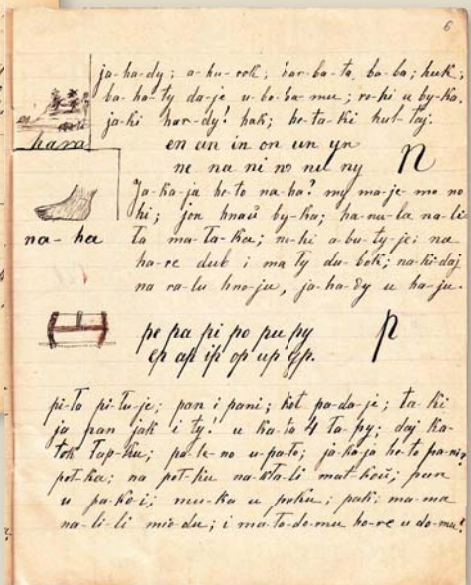 6
ja-ha-dy; a-hu-rok; bar-ba-ta, ba-ba; huk;
ba-ha-ty da-je u-bo-ha-mu; ro-hi u by-ka.
ja-ki har-dy! hak; he-ta-ki hul-taj.
hara
en an in on un yn
ne na ni no nu ny n
Ja-ka-ja he-to na-ha? my ma-je-mo no
hi; jon hnaŭ by-ka; ha-nu-la na-li
na-ha
ła ma-ła-ka; n-hi a-bu-ty-je; na
ha-re dub i ma-ły du-bok; na-ki-daj
na ra-lu hno-ju, ja-ha-dy u ha-ju.
pe pa pi po pu py p
ep ap ip op up yp.
pi-ła pi-łu-je; pan i pani; kot pa-da-je; ta-ki
ja pan jak i ty! u ka-ta 4 ła-py; daj ka-
tok łap-ku; pa-le-no u-pało; ja-ka-ja he-to pa-ni?
pot-ka; na pot-ku na-kła-li mat-koŭ; pan
u pa-ko-i; mu-ka u peku; pak; ma-ma
na-li-li mio-du; i ma-ło-do-mu ho-re u do-mu!